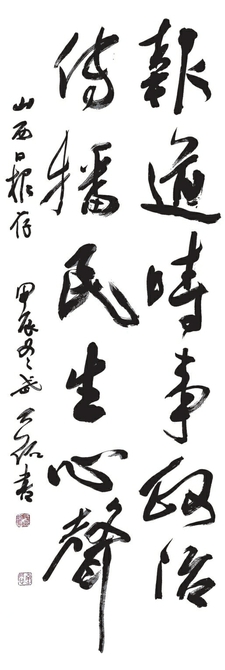 報道時事政治
傳播民生心聲
山西日報存
甲辰冬月 書